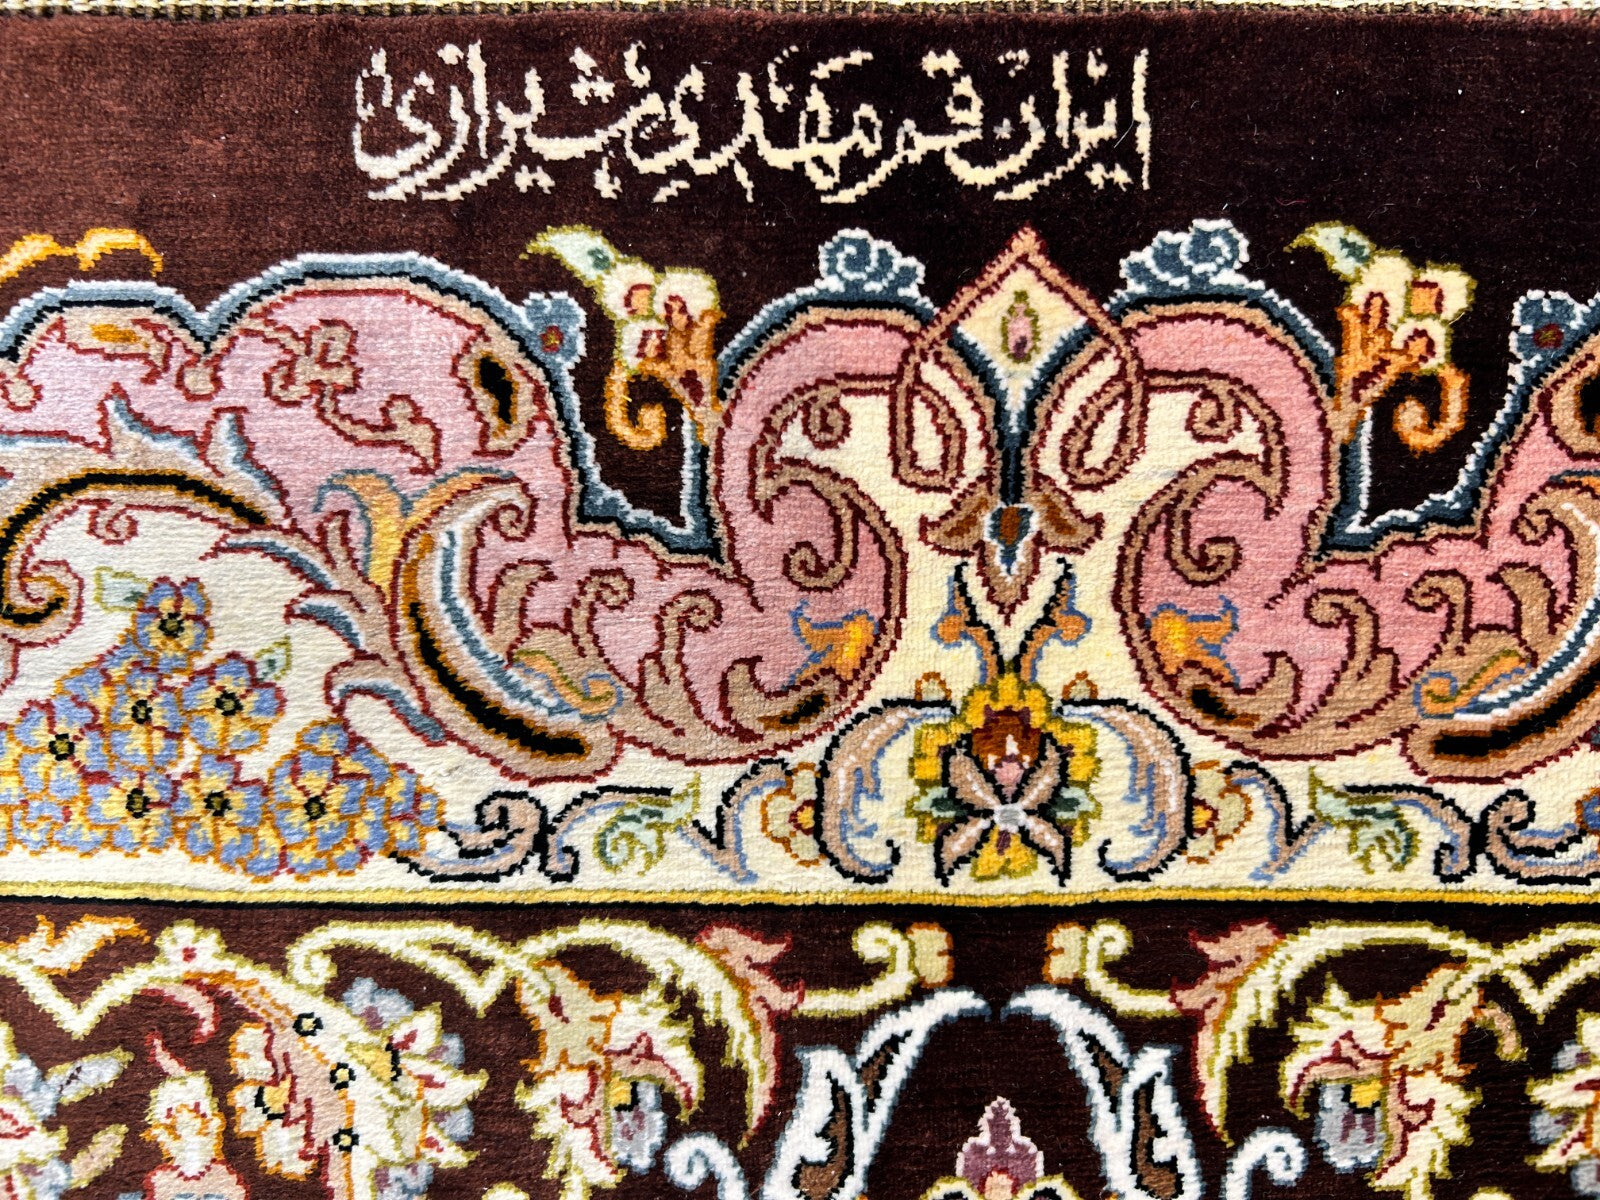 ایران قم مهدی شیرازی